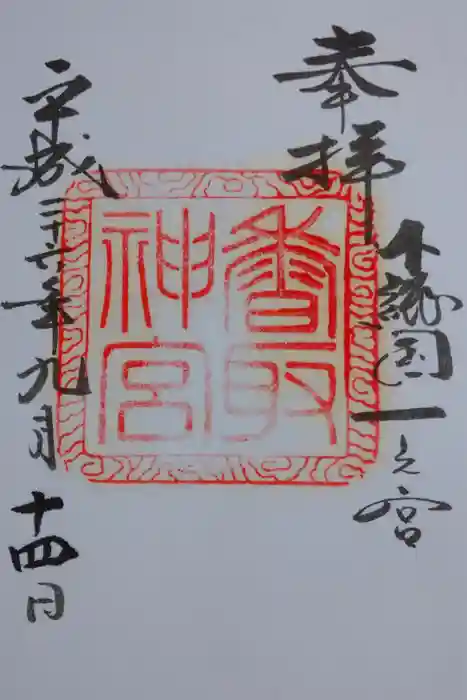 奉拝
下總国一之宮
香取
神宮
平成二十六年九月十四日